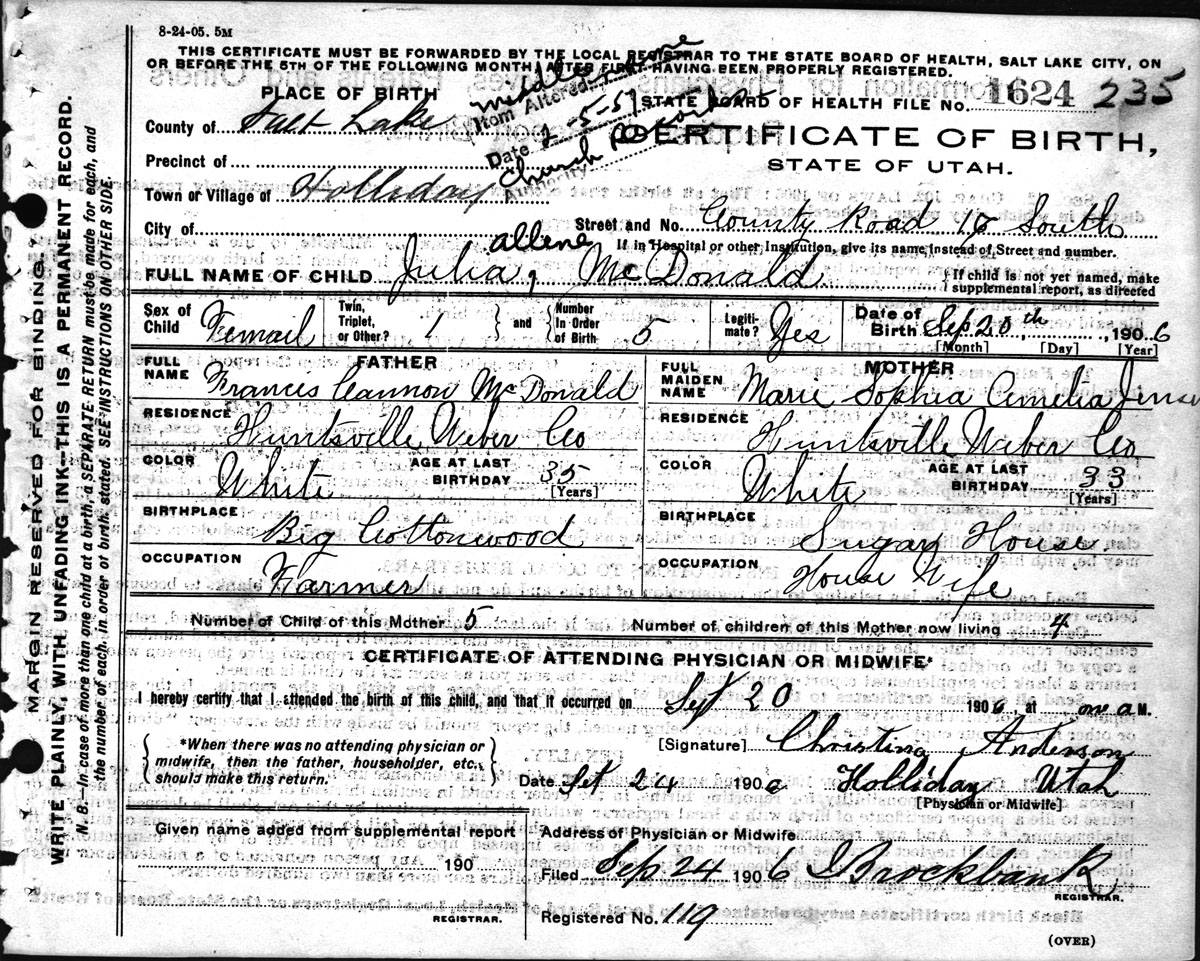 8-24-05. 5M
THIS CERTIFICATE MUST BE FORWARDED BY THE LOCAL REGISTRAR TO THE STATE BOARD OF HEALTH, SALT LAKE CITY, ON
OR BEFORE THE 5TH OF THE FOLLOWING MONTH, AFTER FIRST HAVING BEEN PROPERLY REGISTERED.
PLACE OF BIRTH
middle name
Item Altered
Date 2-5-57
Church Records
Authority
STATE BOARD OF HEALTH FILE No. 1624 235
County of Salt Lake
CERTIFICATE OF BIRTH,
STATE OF UTAH.
Precinct of
Town or Village of Holliday
City of
Street and No. County Road 16 South
If in Hospital or other Institution, give its name instead of Street and number.
allene
FULL NAME OF CHILD Julia, McDonald
{If child is not yet named, make
supplemental report, as directed
Sex of Child Femail
Twin, Triplet, or Other? 1 and Number In Order of Birth 5
Legiti-mate? Yes
Date of Birth Sep 20th, 1906
[Month] [Day] [Year]
FATHER
FULL NAME Frances Cannon McDonald
RESIDENCE Huntsville Weber Co
COLOR White AGE AT LAST BIRTHDAY 35
[Years]
BIRTHPLACE Big Cottonwood
OCCUPATION Farmer
MOTHER
FULL MAIDEN NAME Marie Sophia Amelia Jensen
RESIDENCE Huntsville Weber Co
COLOR White AGE AT LAST BIRTHDAY 33
[Years]
BIRTHPLACE Sugar House
OCCUPATION House Wife
Number of Child of this Mother 5 Number of children of this Mother now living 4
CERTIFICATE OF ATTENDING PHYSICIAN OR MIDWIFE*
I hereby certify that I attended the birth of this child, and that it occurred on Set 20 1906, at one a M.
*When there was no attending physician or
midwife, then the father, householder, etc.,
should make this return.
[Signature] Christina Anderson
Date Set 24 190 Holliday Utah
[Physician or Midwife]
Given name added from supplemental report
190
REGISTRAR.
Address of Physician or Midwife
Filed Sep 24 1906 Brockbank
REGISTRAR.
Registered No. 119
(OVER)
MARGIN RESERVED FOR BINDING
WRITE PLAINLY, WITH UNFADING INK—THIS IS A PERMANENT RECORD.
N. B.—In case of more than one child at a birth, a SEPARATE RETURN must be made for each, and
the number of each, in order of birth, stated. SEE INSTRUCTIONS ON OTHER SIDE.